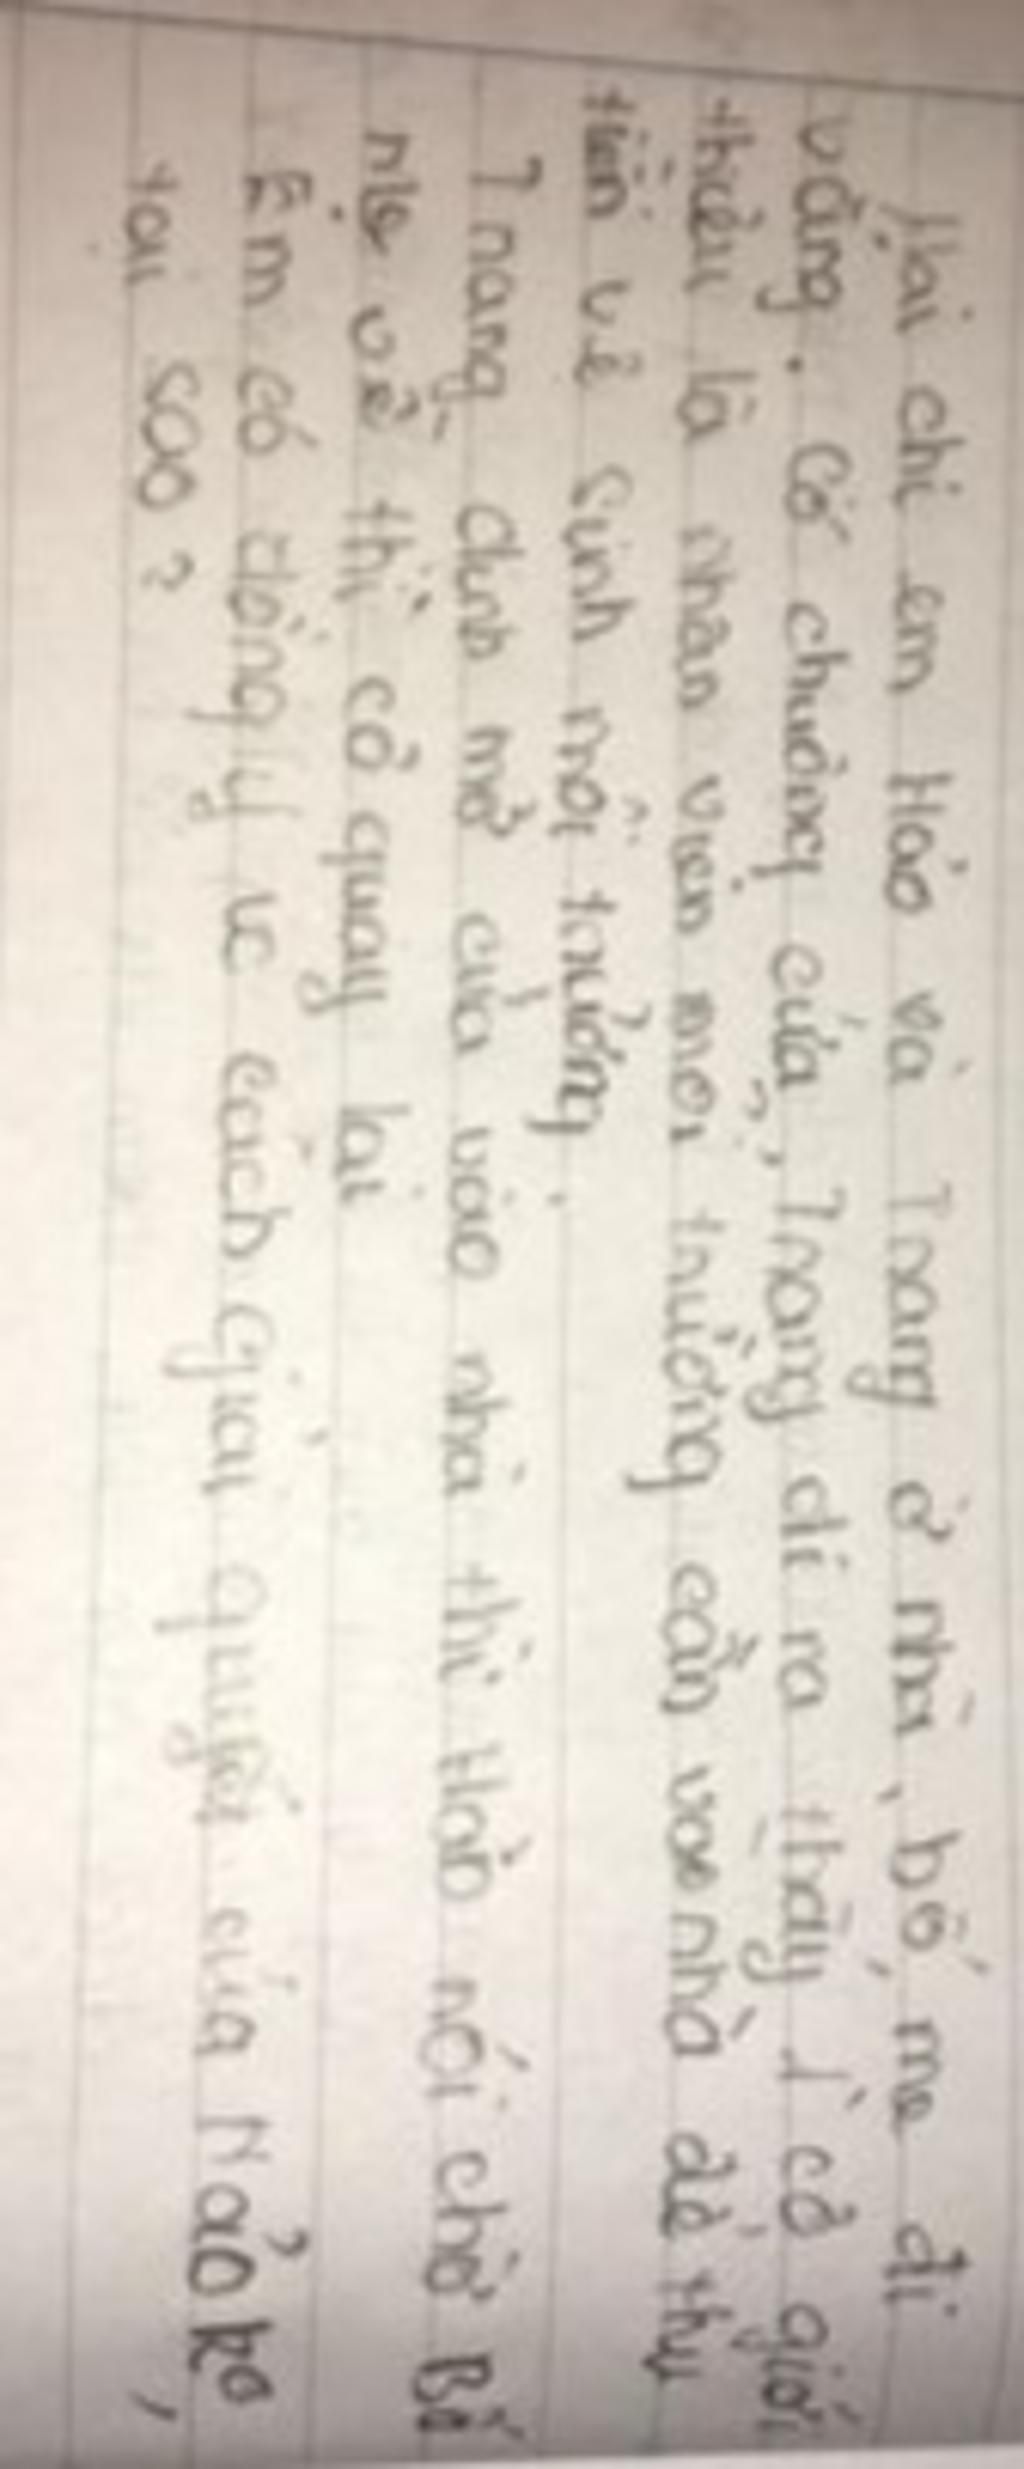 Hai chi em Hảo và Trang ở nhà, bố mẹ đi
vắng. Có chuông cửa, Trang đi ra thấy 1 cô giới
thiệu là nhân viên môi trường cần vào nhà để thu
tiền vê sinh môi trường.
Trang định mở cửa vào nhà thì Hảo nói chờ Bố
mẹ về thì cô quay lại
Em có đồng ý vc cách giải quyết của Hảo ko,
tại sao?